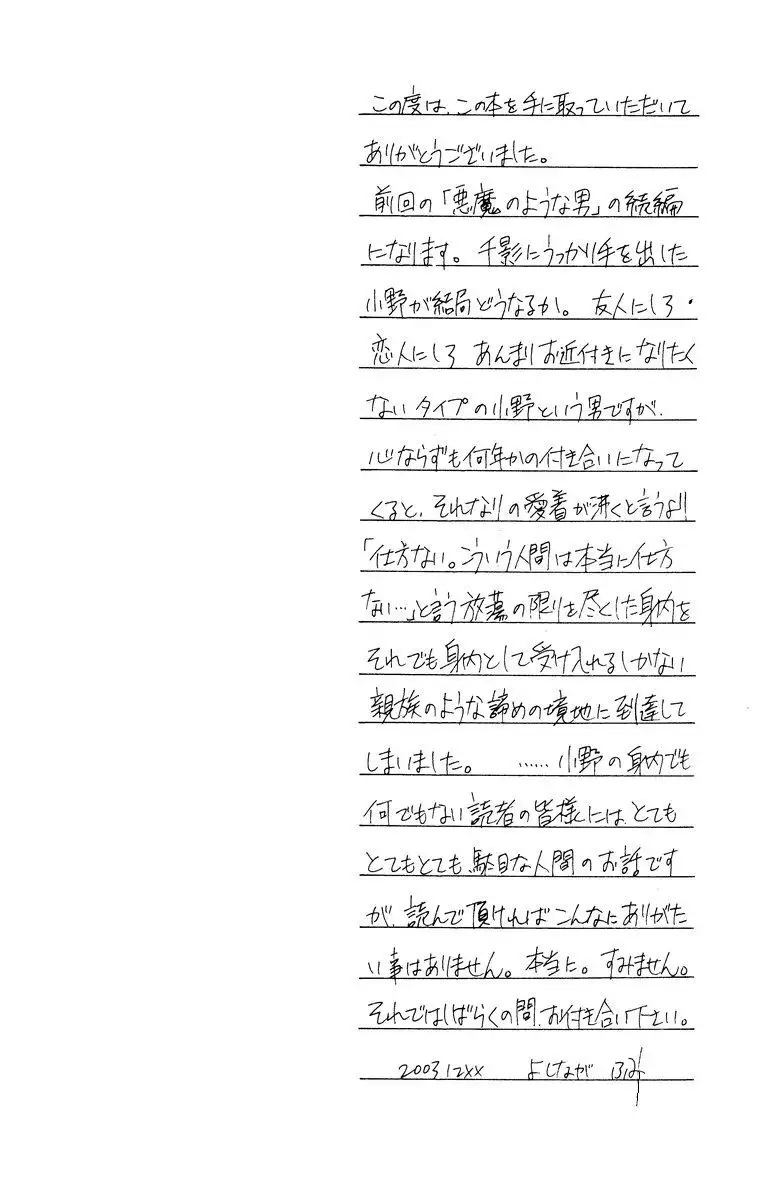 この度は、この本を手に取っていただいて
ありがとうございました。
前回の「悪魔のような男」の続編
になります。千影にうっかり手を出した
小野が結局どうなるか。友人にしろ・
恋人にしろ あんまりお近付きになりたく
ないタイプの小野という男ですが、
心ならずも何年かの付き合いになって
くると、それなりの愛着が沸くと言うより
「仕方ない。こういう人間は本当に仕方
ない…」と言う放蕩の限りを尽くした身内を
それでも身内として受け入れるしかない
親族のような諦めの境地に到達して
しまいました。 ……小野の身内でも
何でもない読者の皆様には、とても
とてもとても駄目な人間のお話です
が、読んで頂ければこんなにありがた
い事はありません。本当に。すみません。
それではしばらくの間、お付き合い下さい。
2003 12XX よしなが ふみ